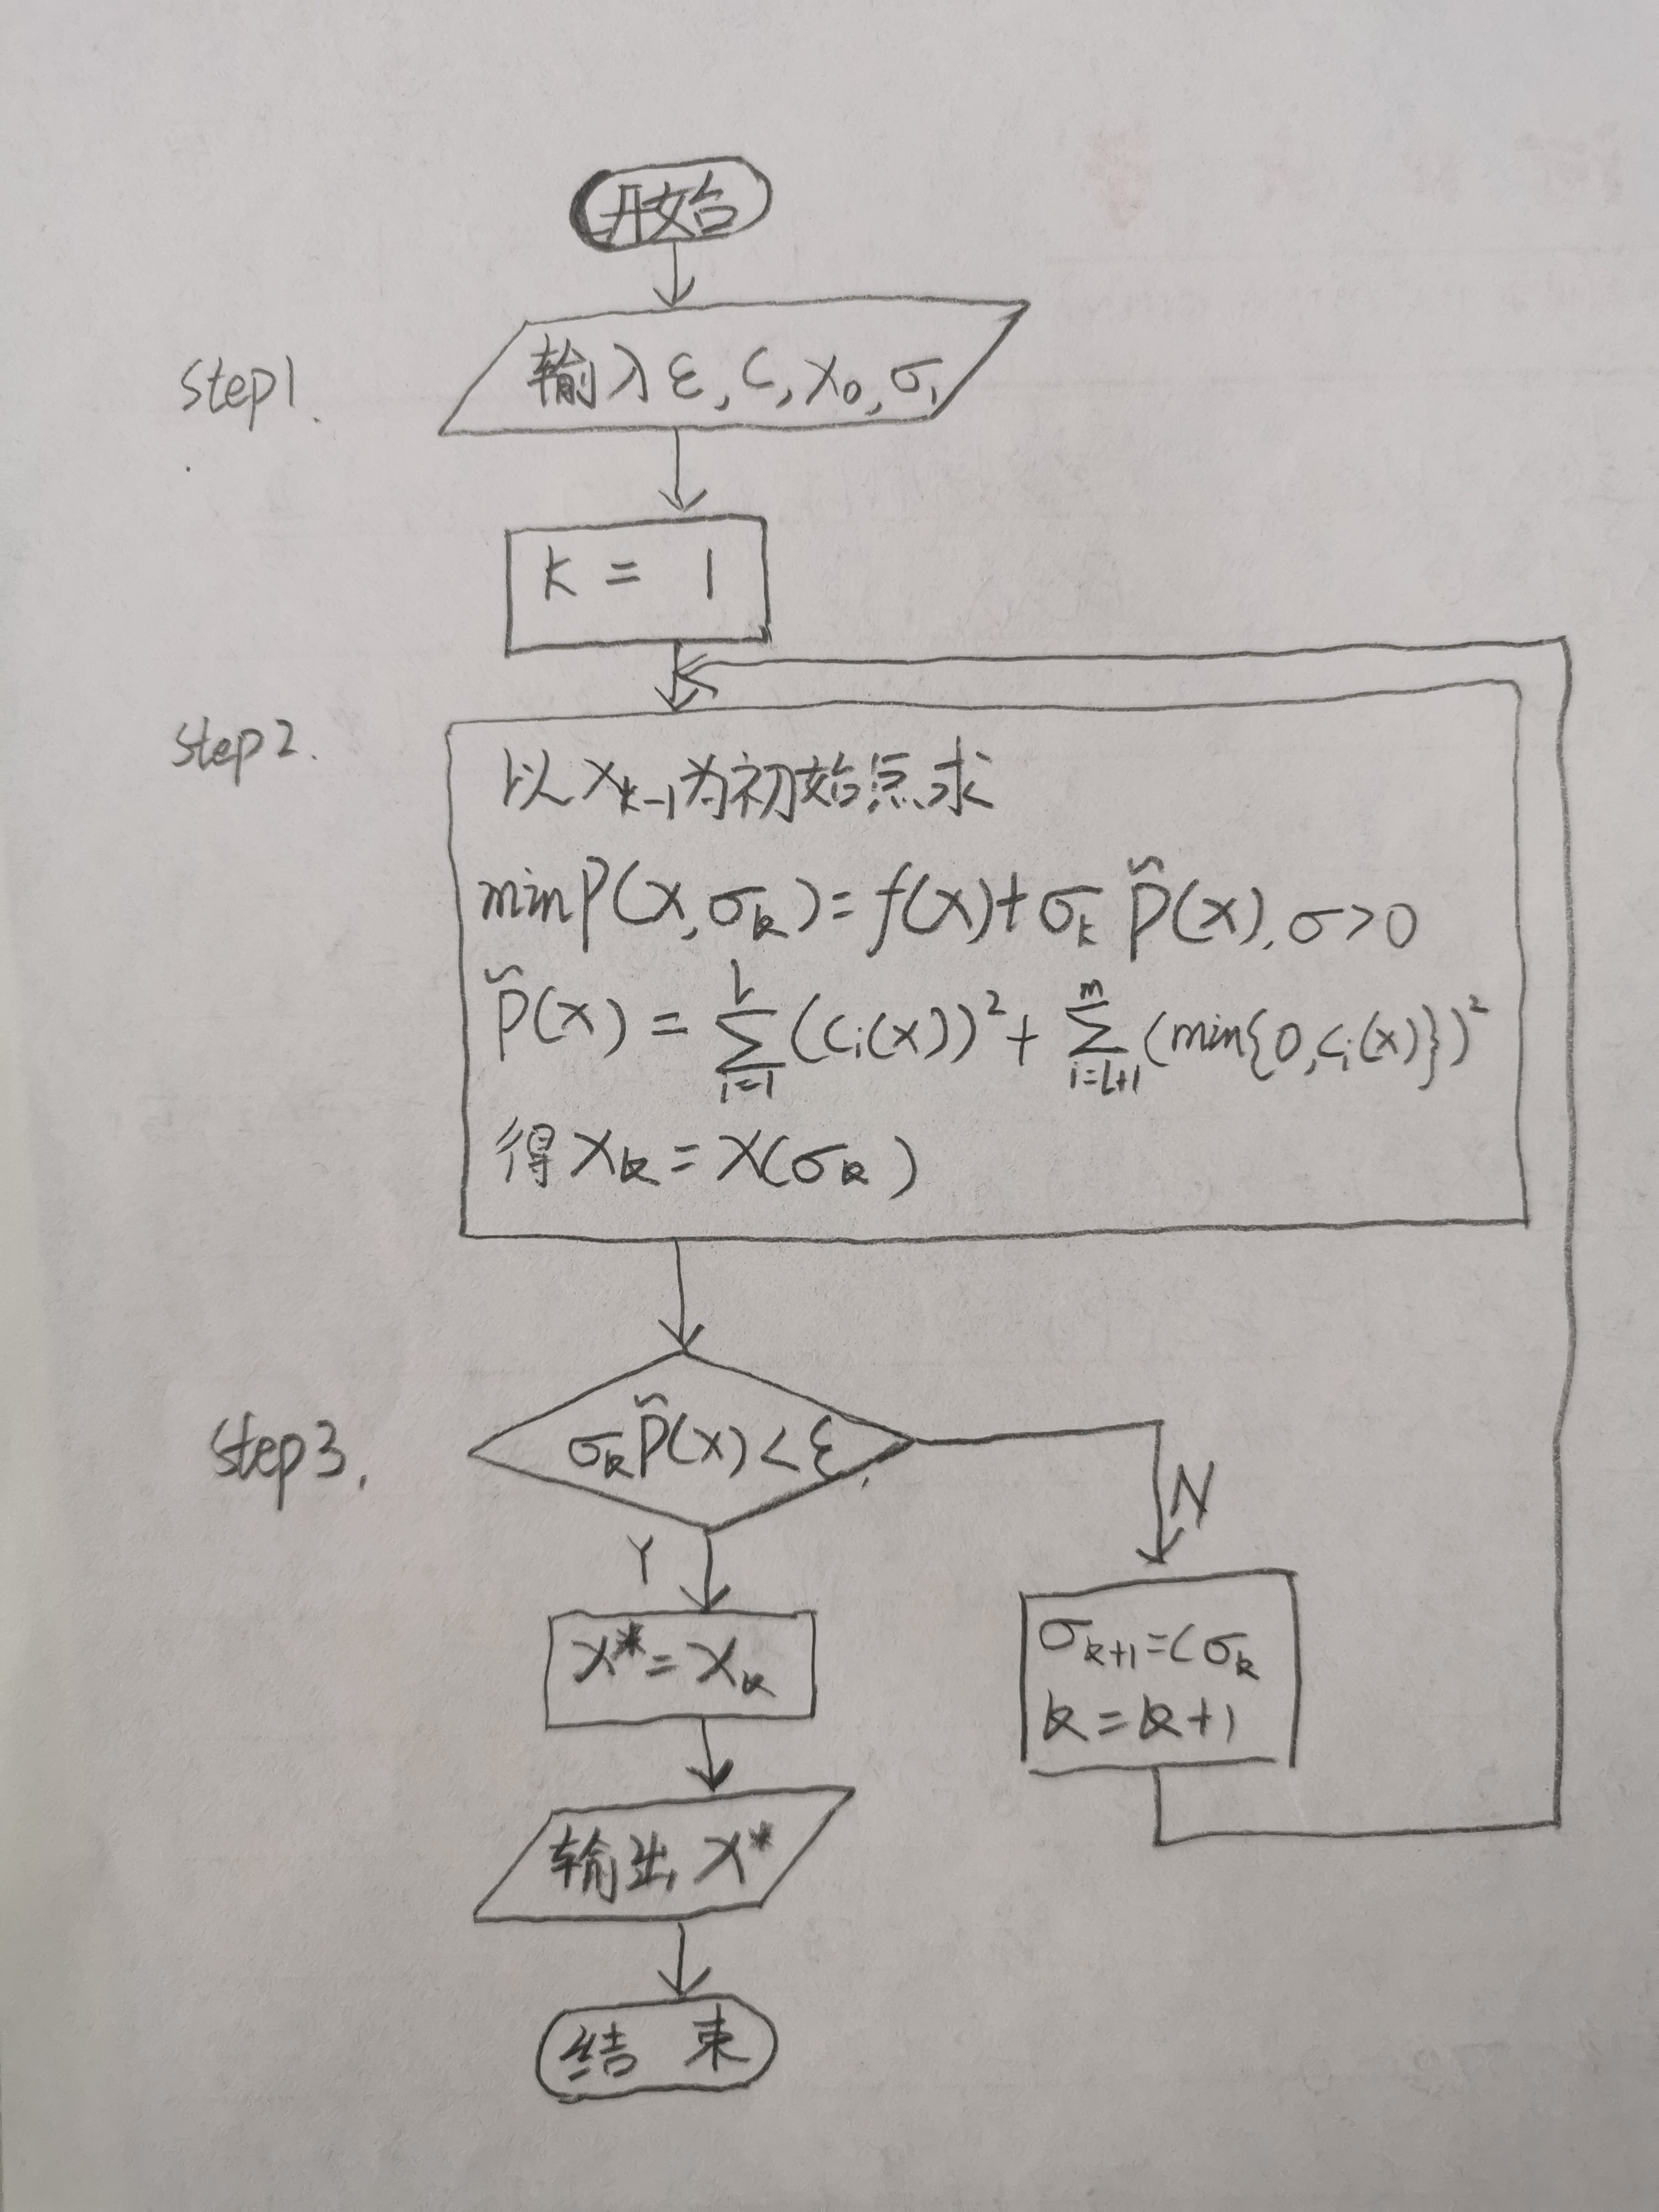 开始
step1.
输入 ε, c, x₀, σ₁
k = 1
step2.
以 xₖ₋₁ 为初始点求
min P(x, σₖ) = f(x) + σₖ P̃(x), σ > 0
P̃(x) = ∑_{i=1}^{l} (cᵢ(x))² + ∑_{i=l+1}^{m} (min{0, cᵢ(x)})²
得 xₖ = x(σₖ)
step3.
σₖ P̃(x) < ε
N
Y
x* = xₖ
σₖ₊₁ = cσₖ
k = k+1
输出 x*
结束